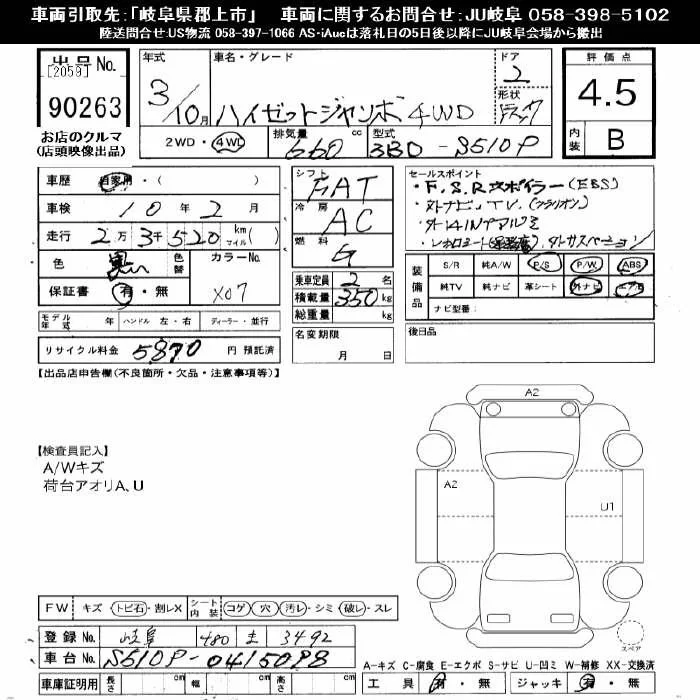 車両引取先:「岐阜県郡上市」 車両に関するお問合せ:JU岐阜 058-398-5102
陸送問合せ:US物流 058-397-1066 AS・iAucは落札日の5日後以降にJU岐阜会場から搬出
出品No.
[2059]
90263
お店のクルマ
(店頭映像出品)
年式 3/10月
車名・グレード ハイゼットジャンボ 4WD
ドア 2
形状 トラック
評価点 4.5
内装 B
2WD・4WD 排気量 660 cc 型式 3BD-S510P
車歴 自家用・( )
車検 10年2月
走行 2万3千520 km マイル( )
色 黒 色替 カラーNo. X07
保証書 有・無
シフト FAT
冷房 AC
燃料 G
乗車定員 2 名
積載量 350 kg
総重量 kg
名変期限 月 日
セールスポイント
・F.S.Rスポイラー(EBS)
・外ナビ.TV.(クラリオン)
・外14INアルミ
装備品 S/R 純A/W P/S P/W ABS
純TV 純ナビ 革シート 外ナビ エアB
ナビ型番:
後日品
モデル年式 年 ハンドル 左・右 ディーラー・並行
リサイクル料金 5870 円 預託済
【出品店申告欄(不良箇所・欠品・注意事項等)】
【検査員記入】
A/Wキズ
荷台アオリA、U
A2
A2
U1
スペア
FW キズ・トビ石・割レX シート内装 コゲ・穴・汚レ・シミ・破レ・スレ
登録No. 岐阜 480 き 3492
車台No. S510P-0415098
車庫証明用 長さ cm 幅 cm 高さ cm
A-キズ C-腐食 E-エクボ S-サビ U-凹ミ W-補修 XX-交換済
工具 有・無 ジャッキ 有・無